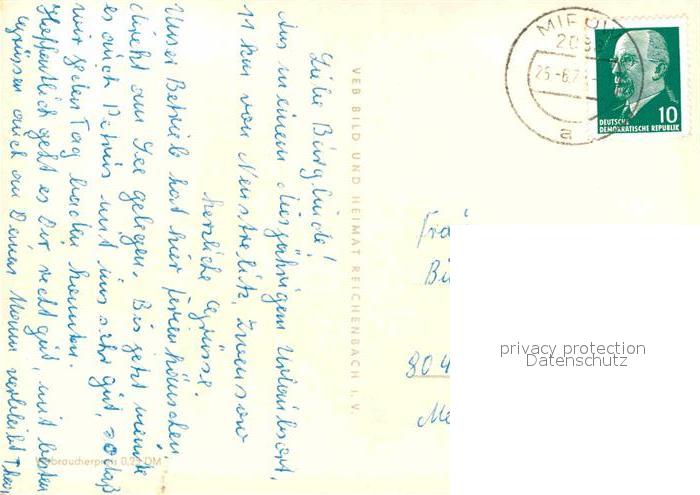 Liebe Burglinde!
Aus meinem diesjährigen Urlaubsort,
11 km von Neustrelitz, Zwenzow
herzliche Grüsse.
Unser Betrieb hat hier Ferienhäuschen
direkt am See gelegen. Bis jetzt meinte
es auch Petrus mit uns sehr gut, sodaß
wir jeden Tag baden konnten.
Hoffentlich geht es Dir recht gut, mit besten
Grüssen auch an Deinen Mann verbleibt
VEB BILD UND HEIMAT REICHENBACH I. V.
Verbraucherpreis 0,25 DM
MIROW
25.-6.7
a
10
DEUTSCHE
DEMOKRATISCHE REPUBLIK
804
privacy protection
Datenschutz